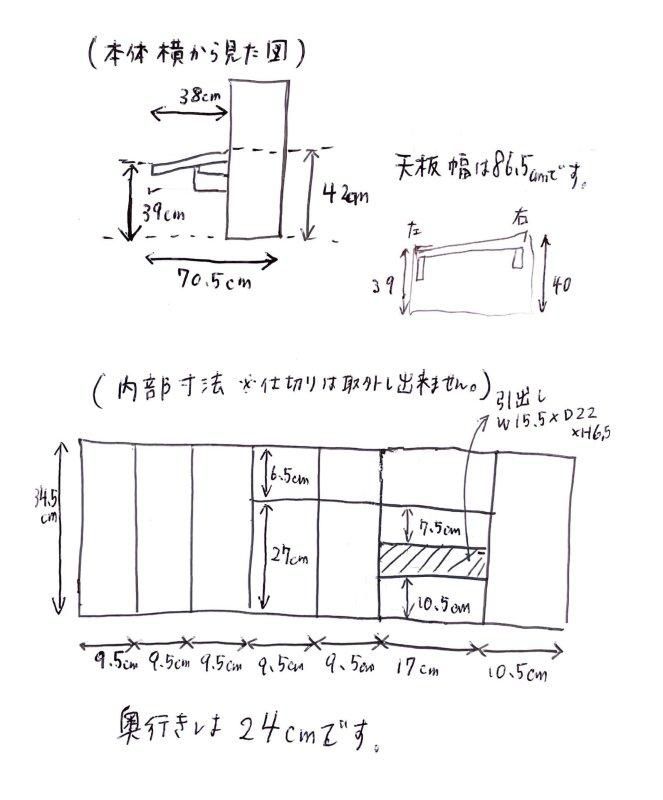 (本体 横から見た図)
38cm
天板 幅は86.5cmです。
42cm
39cm
70.5cm
左
右
39
40
(内部寸法 ※仕切りは取外し出来ません。)
引出し
W15.5×D22
×H6.5
34.5
cm
6.5cm
7.5cm
27cm
10.5cm
9.5cm 9.5cm 9.5cm 9.5cm 9.5cm 17cm 10.5cm
奥行きは 24cmです。